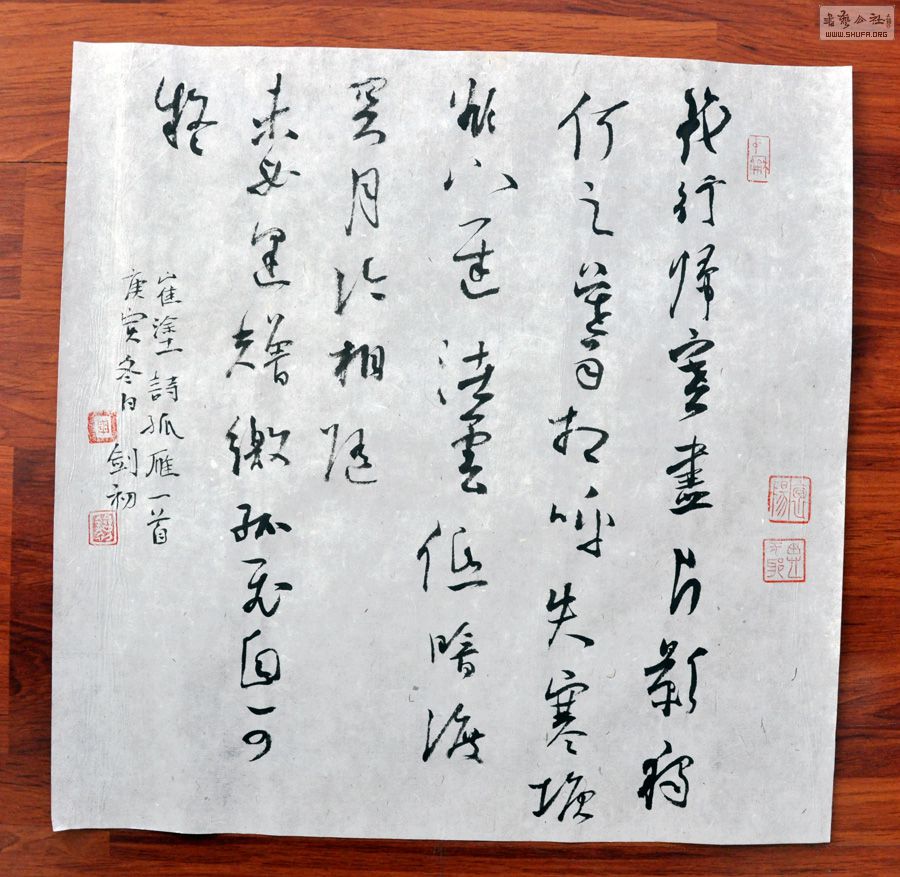 幾行歸塞盡片影獨
何之暮雨相呼失寒塘
欲下遲渚雲低暗渡
關月冷相隨
未必逢矰繳孤飛自可
疑
崔塗詩孤雁一首
庚寅冬日劍初
書藝公社
WWW.SHUFA.ORG